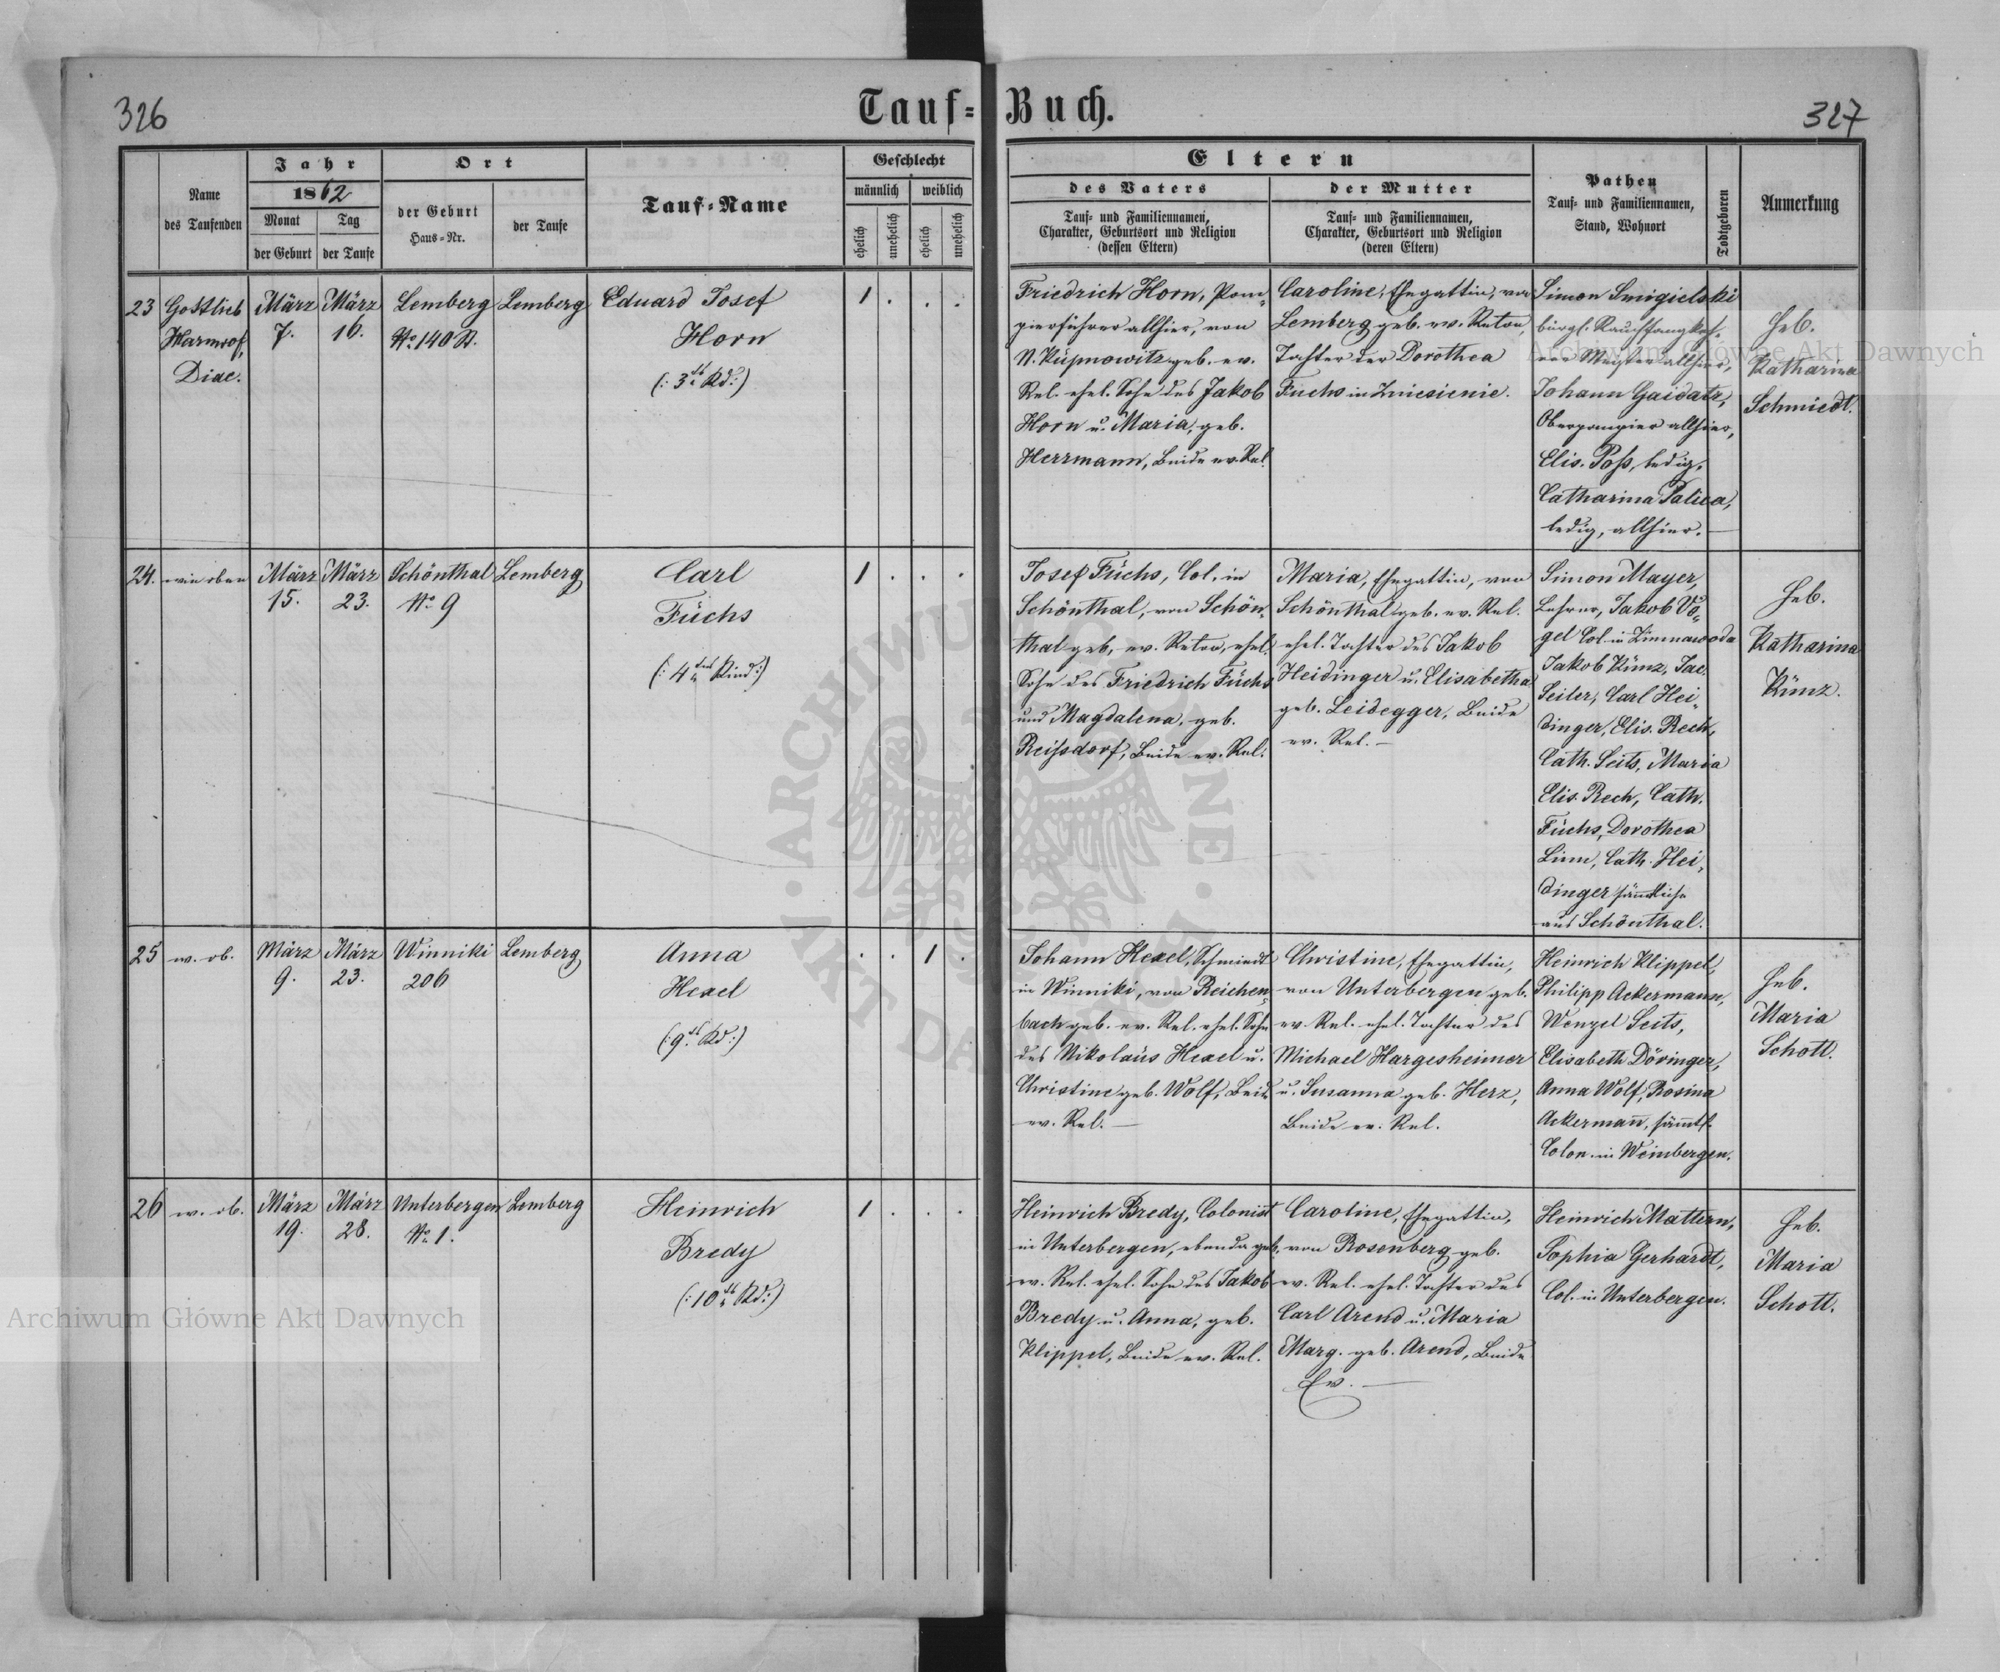 326
Tauf-Buch.
327
Name
des Taufenden
Jahr
1862
Monat
der Geburt
Tag
der Taufe
Ort
der Geburt
Haus-Nr.
der Taufe
Tauf-Name
Geschlecht
männlich
weiblich
ehelich
unehelich
ehelich
unehelich
Eltern
des Vaters
Tauf- und Familiennamen,
Charakter, Geburtsort und Religion
(dessen Eltern)
der Mutter
Tauf- und Familiennamen,
Charakter, Geburtsort und Religion
(deren Eltern)
Pathen
Tauf- und Familiennamen,
Stand, Wohnort
Todtgeboren
Anmerkung
23
Gottlieb
Diac.
März
7.
März
16.
Lemberg
No 140 St.
Lemberg
Eduard Josef
Horn
(: 3tes Kd :)
1 . . .
Friedrich Horn, Pom-
pierführer allhier, von
geb. ev.
Rel. ehel. Sohn des Jakob
Horn u. Maria, geb.
Herrmann, Beide ev. Rel.
Caroline, Ehegattin, von
Lemberg geb. ev. Relon,
Tochter der Dorothea
Fuchs in Zniesienie.
Simon Smigielski
bürgl. Rauchfangkeh-
rer Meister allhier,
Johann Gaidatz,
Oberpompier allhier,
Elis. Poß, ledig,
Catharina Palica,
ledig, allhier.
Heb.
Katharina
Schmiedt.
24.
wie oben
März
15.
März
23.
Schönthal
No 9
Lemberg
Carl
Fuchs
(: 4tes Kind :)
1 . . .
Josef Fuchs, Col. in
Schönthal, von Schön-
thal geb, ev. Relon, ehel.
Sohn des Friedrich Fuchs
und Magdalena, geb.
Reissdorf, Beide ev. Rel.
Maria, Ehegattin, von
Schönthal geb. ev. Rel.
ehel. Tochter des Jakob
Heidinger u. Elisabetha
geb. Leidegger, Beide
ev. Rel. —
Simon Mayer,
Lehrer, Jakob Vo-
gel Col. in Zimnawoda
Jakob Künz, Jac.
Seiler, Carl Hei-
dinger, Elis. Rech,
Cath. Seits, Maria
Elis. Rech, Cath.
Fuchs, Dorothea
Linn, Cath. Hei-
dinger sämtliche
aus Schönthal.
Heb.
Katharina
Künz.
25
w. ob.
März
9.
März
23.
Winniki
206
Lemberg
Anna
Hexel
(: 9tes Kd :)
. . 1 .
Johann Hexel, Schmiedt
in Winniki, von Reichen-
bach geb. ev. Rel. ehel. Sohn
des Nikolaus Hexel u.
Christine geb. Wolf, Beide
ev. Rel. —
Christine, Ehegattin,
von Unterbergen geb.
ev. Rel. ehel. Tochter des
Michael Hargesheimer
u. Susanna geb. Herz,
Beide ev. Rel.
Heinrich Klippel,
Philipp Ackermann,
Wenzel Seits,
Elisabeth Döringer,
Anna Wolf, Rosina
Ackermañ, sämtl.
Colon. in Weinbergen.
Heb.
Maria
Schott.
26
w. ob.
März
19.
März
28.
Unterbergen
No 1.
Lemberg
Heinrich
Bredy
(: 10tes Kd :)
1 . . .
Heinrich Bredy, Colonist
in Unterbergen, ebenda geb,
ev. Rel. ehel. Sohn des Jakob
Bredy u. Anna, geb.
Klippel, Beide ev. Rel.
Caroline, Ehegattin,
von Rosenberg geb.
ev. Rel. ehel. Tochter des
Carl Arend u. Maria
Marg. geb. Arend, Beide
Ev. —
Heinrich Mattern,
Sophia Gerhardt,
Col. in Unterbergen.
Heb.
Maria
Schott.
Archiwum Główne Akt Dawnych
Archiwum Główne Akt Dawnych